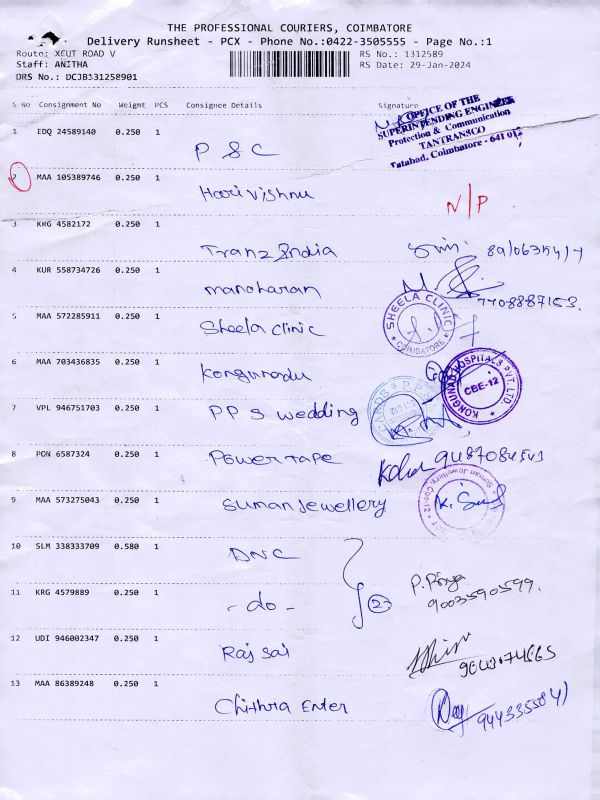 THE PROFESSIONAL COURIERS, COIMBATORE
Delivery Runsheet - PCX - Phone No.:0422-3505555 - Page No.:1
Route: XCUT ROAD V RS No.: 1312589
Staff: ANITHA RS Date: 29-Jan-2024
DRS No.: DCJB131258901
S No Consignment No Weight PCS Consignee Details Signature
OFFICE OF THE
SUPERINTENDING ENGINEER
Protection & Communication
TANTRANSCO
Tatabad, Coimbatore - 641 012
1 EDQ 24589140 0.250 1
P S C
2 MAA 105389746 0.250 1
Hari Vishnu N/P
3 KRG 4582172 0.250 1
Tranz India
4 KUR 558734726 0.250 1
manoharan
5 MAA 572285911 0.250 1
Sheela clinic
SHEELA CLINIC
* COIMBATORE *
6 MAA 703436835 0.250 1
kongunadu
KONGUNAD HOSPITALS PVT. LTD.
CBE-12
7 VPL 946751703 0.250 1
PP S wedding
8 PON 6587324 0.250 1
Power Tape
9 MAA 573275043 0.250 1
suman Jewellery
Suman Jewellery, Cbe-12
10 SLM 338333709 0.580 1
DNC
11 KRG 4579889 0.250 1
- do - 2
P. Priya
9003590599.
12 UDI 946002347 0.250 1
Raj sai
13 MAA 86389248 0.250 1
Chithra Enter